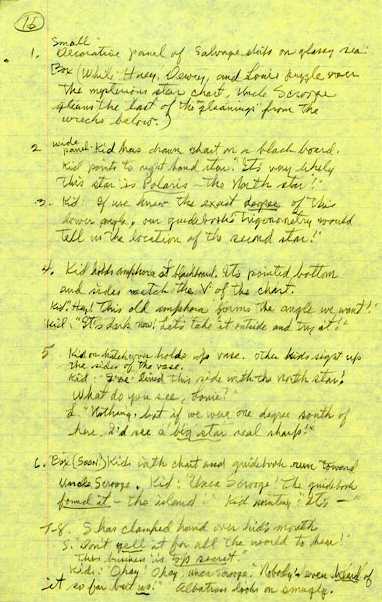 16
1. Small - Decorative panel of salvage ships on glassy sea.
Box (While Huey, Dewey, and Louie puzzle over
the mysterious star chart, Uncle Scrooge
gleans the last of the "gleanings" from the
wrecks below.)
2 wide panel - Kid has drawn chart on a black board.
Kid points to right hand star. "It's very likely
this star is Polaris - the North star!"
3. Kid: "If we knew the exact degree of this
lower angle, our guidebook's trigonometry would
tell us the location of the second star!"
4. Kid holds amphora at blackboard. Its pointed bottom
and sides match the V of the chart.
Kid: "Hey! This old amphora forms the angle we want!"
Kid: "It's dark now. Let's take it outside and try it!"
5 Kid on holds up vase. Other kids sight up
the sides of the vase.
Kid: "I've lined this side with the North star!
What do you see, Louie?"
L "Nothing, but if we were one degree south of
here, I'd see a big star real sharp!"
6. Box (Soon!) Kids with chart and guidebook run toward
Uncle Scrooge. Kid: "Unca Scrooge! The guidebook
found it - the island!" Kid "It's -"
7-8. S has clamped hand over kid's mouth
S. "Don't yell it for all the world to hear!
This business is top secret."
Kids: "Okay, Okay, Unca Scrooge! Nobody's even heard of
it so far but us!" Albatross looks on smugly.